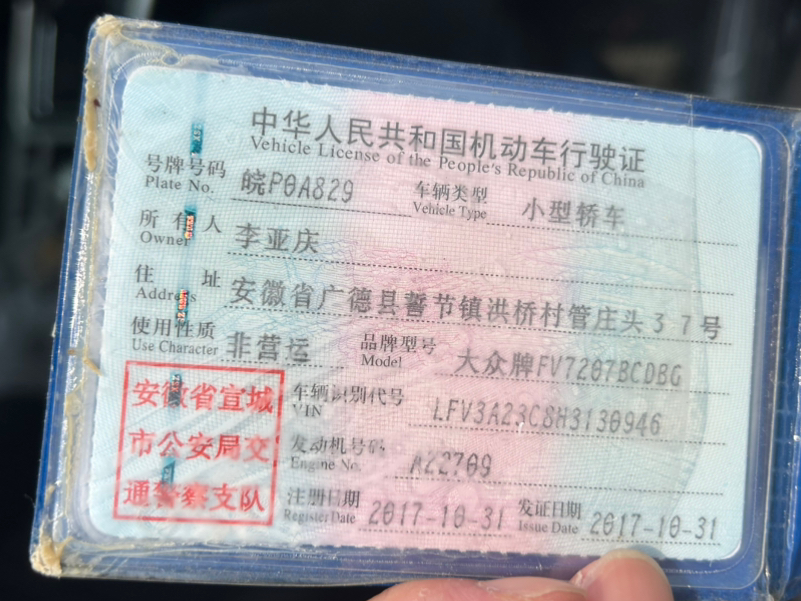 中华人民共和国机动车行驶证
Vehicle License of the People's Republic of China
号牌号码 皖P0A829 车辆类型 小型轿车
Plate No. Vehicle Type
所有人 李亚庆
Owner
住址 安徽省广德县誓节镇洪桥村管庄头37号
Address
使用性质 非营运 品牌型号 大众牌FV7207BCDBG
Use Character Model
安徽省宣城 车辆识别代号 LFV3A23C8H3130946
VIN
市公安局交 发动机号码 A22709
Engine No.
通警察支队 注册日期 2017-10-31 发证日期 2017-10-31
Register Date Issue Date